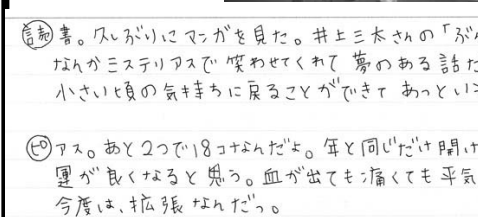 読書。久しぶりにマンガを見た。井上三太さんの「ぶん
なんかミステリアスで笑わせてくれて夢のある話だ
小さい頃の気持ちに戻ることができてあっという
ピアス。あと2つで18コなんだよ。年と同じだけ開け
運が良くなると思う。血が出ても痛くても平気
今度は、拡張なんだっ。